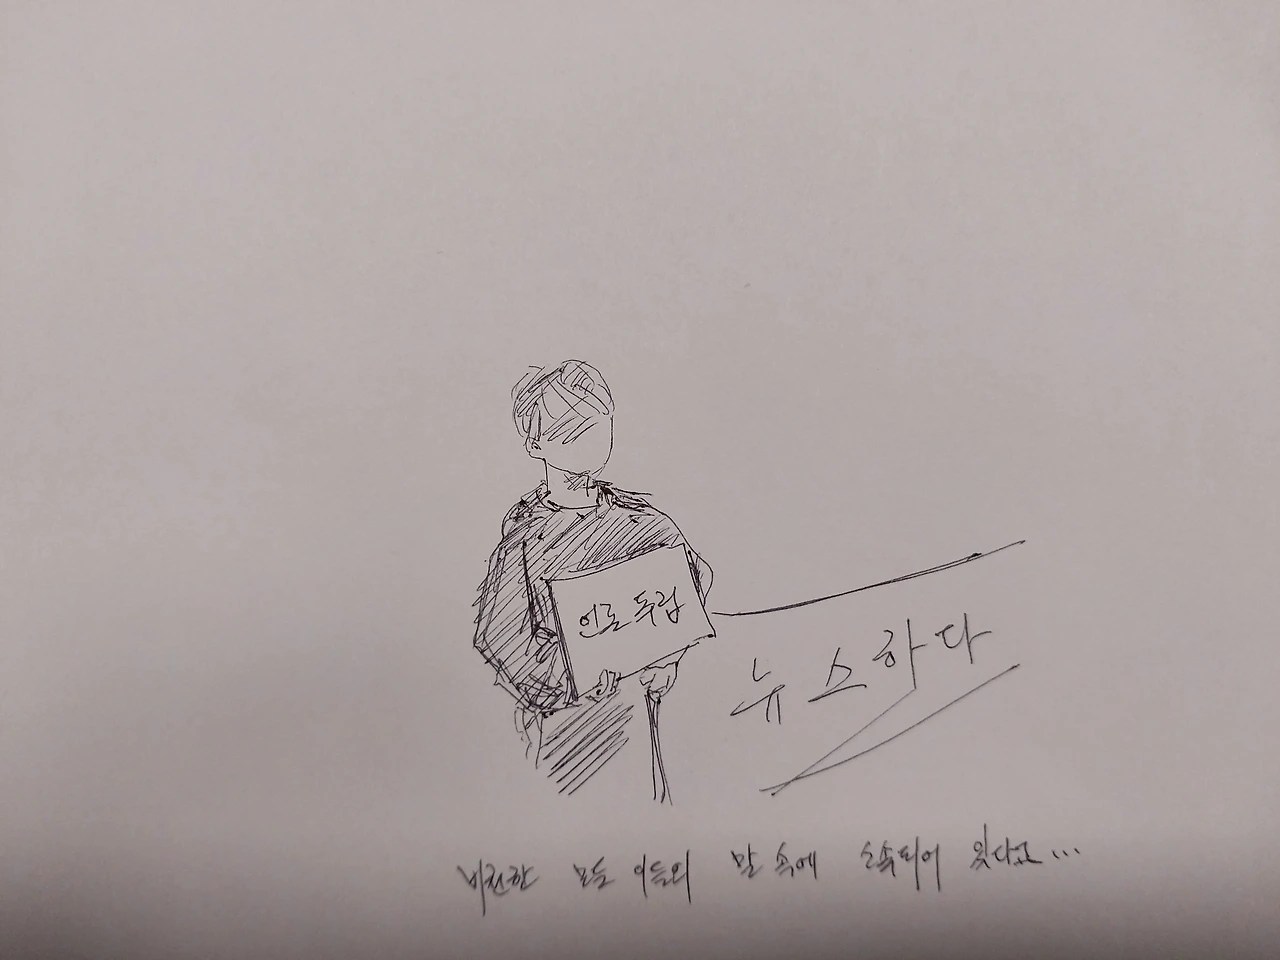 언론독립
뉴스하다
비천한 모든 이들의 말 속에 소속되어 있다고...